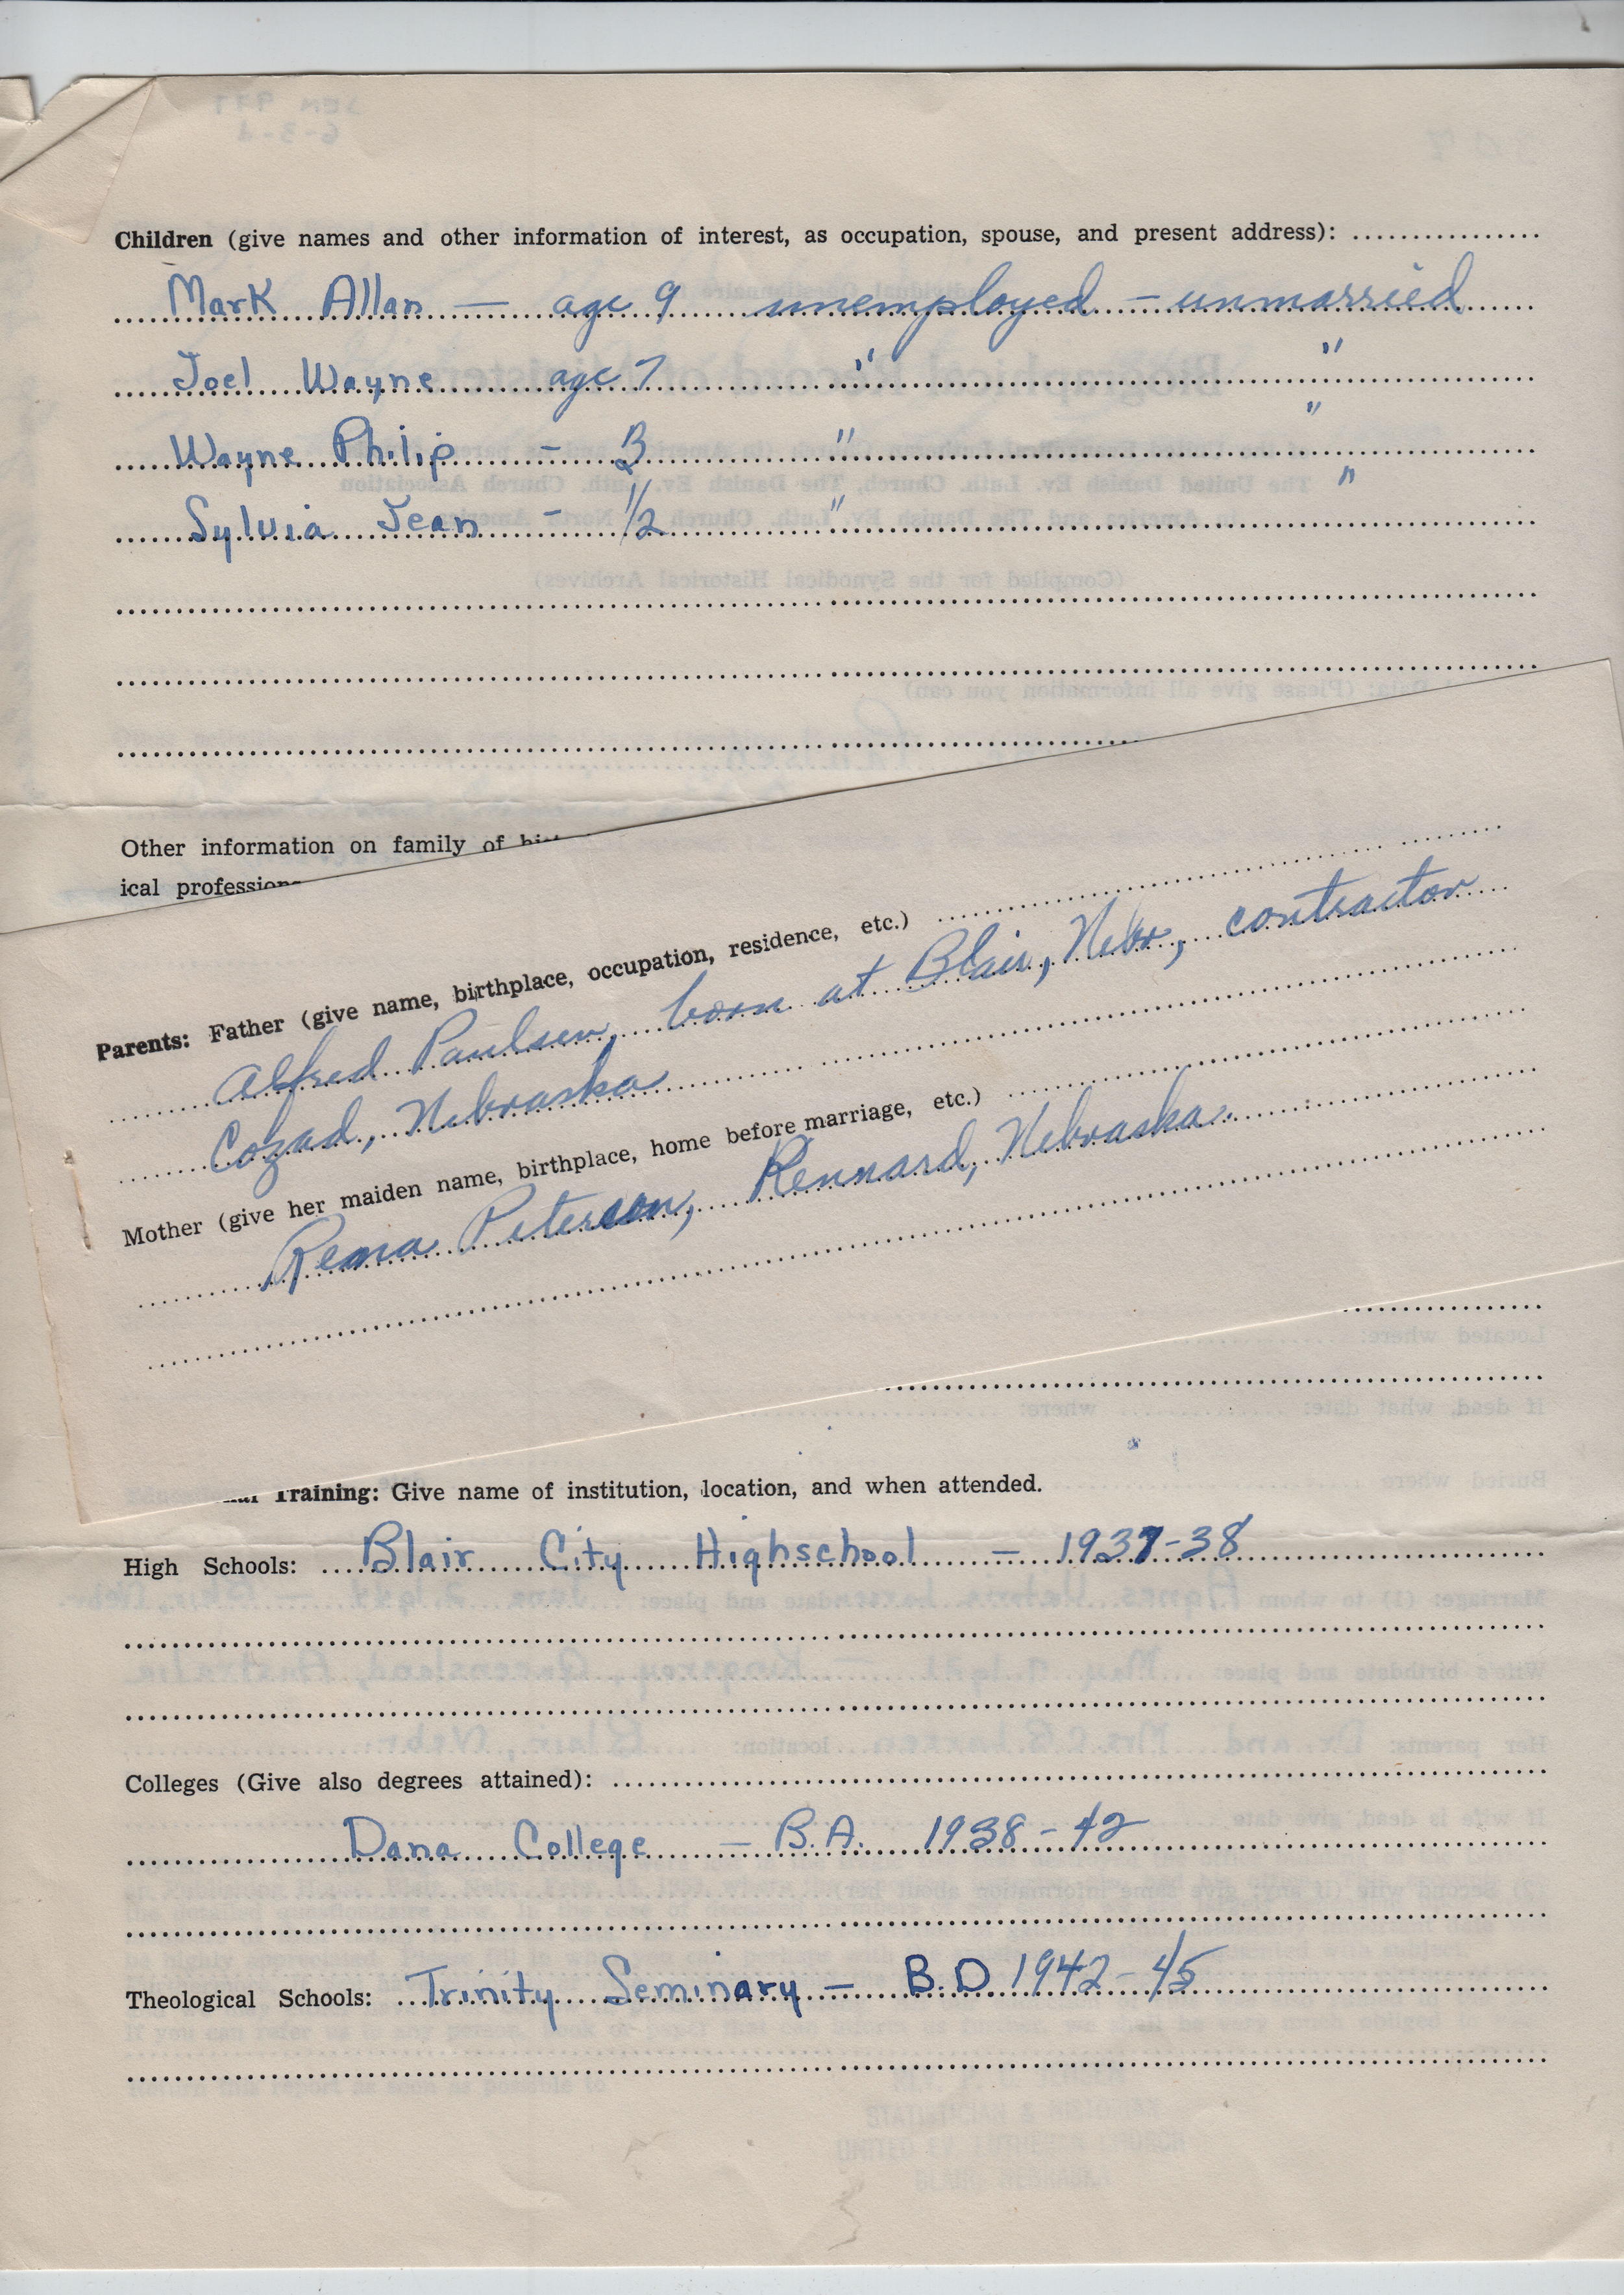 Children (give names and other information of interest, as occupation, spouse, and present address):
Mark Allan — age 9 unemployed – unmarried
Joel Wayne age 7 " "
Wayne Philip - 3 " "
Sylvia Jean - 1/2 " "
Other information on family of
ical profession
Parents: Father (give name, birthplace, occupation, residence, etc.)
Alfred Paulsen, born at Blair, Nebr, contractor
Cozad, Nebraska
Mother (give her maiden name, birthplace, home before marriage, etc.)
Rema Peterson, Kennard, Nebraska.
Training: Give name of institution, location, and when attended.
High Schools: Blair City Highschool — 1937-38
Colleges (Give also degrees attained):
Dana College — B.A. 1938-42
Theological Schools: Trinity Seminary — B.D 1942-45